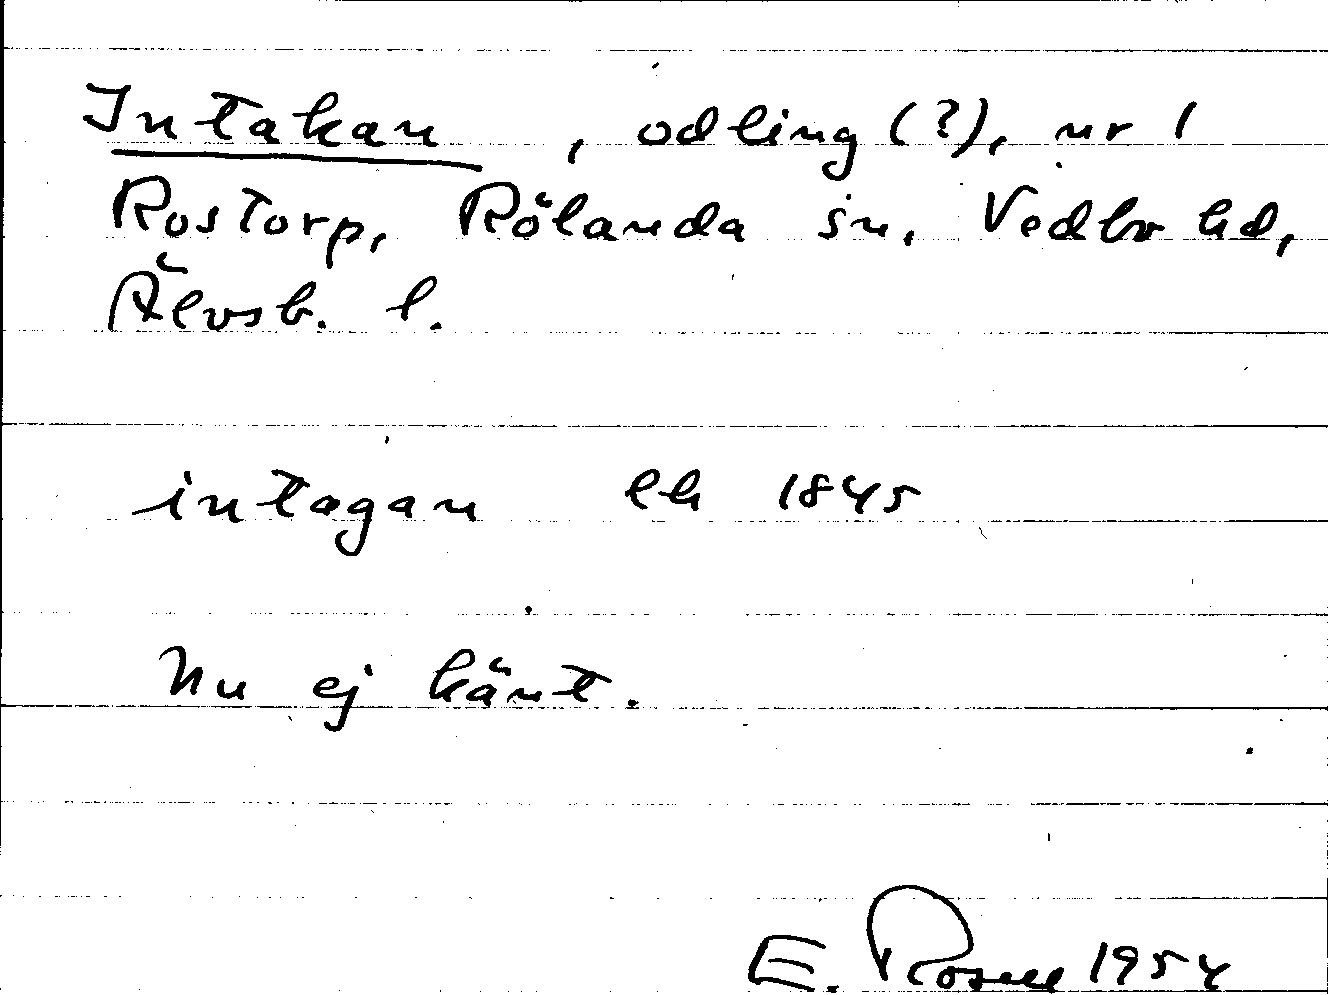 Intakan, odling (?), nr 1
Rostorp, Rölanda sn, Vedbo hd,
Älvsb. l.
intagan lh 1845
Nu ej känt.
E. Rosell 1954